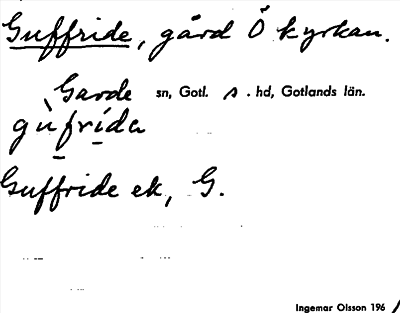 Guffride, gård Ö kyrkan.
Garde sn, Gotl. s. hd, Gotlands län.
gu̠̇̀frí̠da
Guffride ek, G.
Ingemar Olsson 196 /